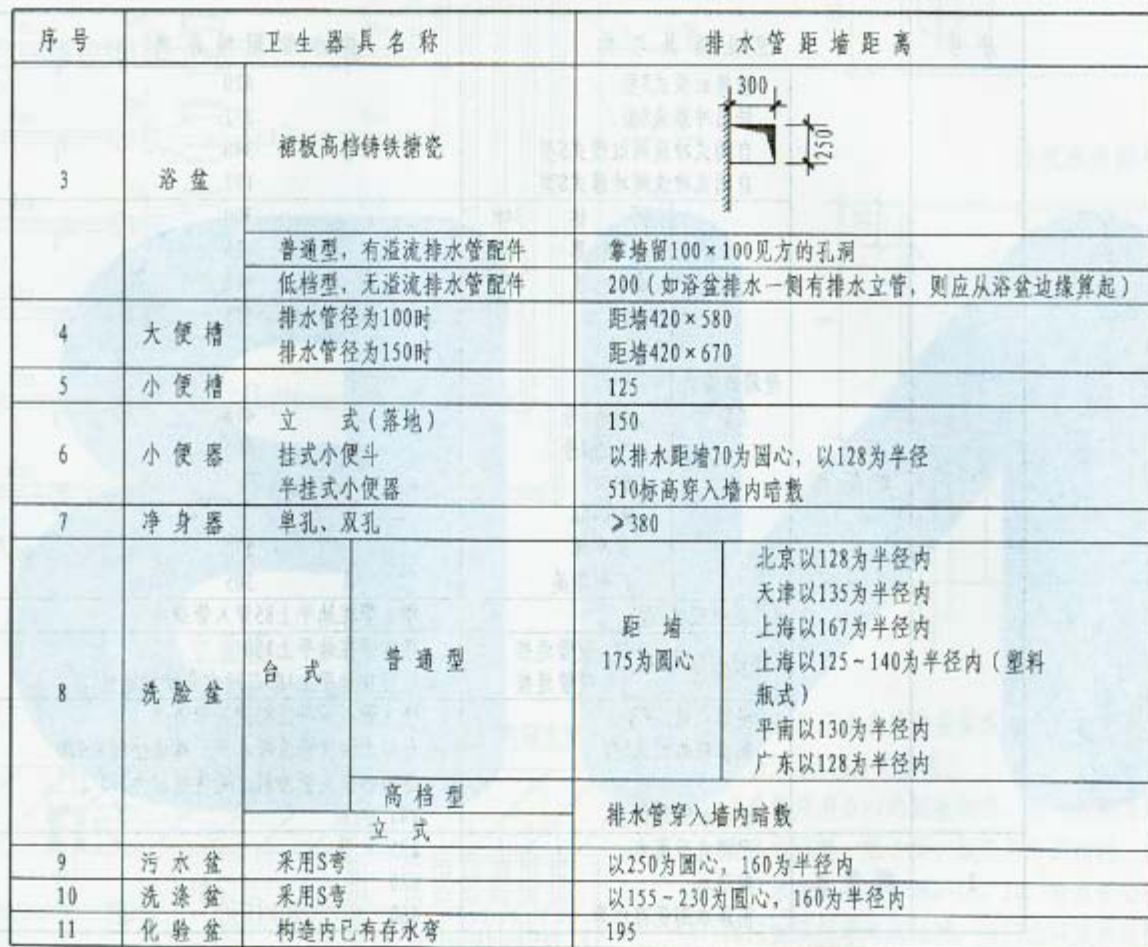 序号 卫生器具名称 排水管距墙距离
3 浴盆 裙板高档铸铁搪瓷 300 250
普通型，有溢流排水管配件 靠墙留100×100见方的孔洞
低档型，无溢流排水管配件 200（如浴盆排水一侧有排水立管，则应从浴盆边缘算起）
4 大便槽 排水管径为100时 距墙420×580
排水管径为150时 距墙420×670
5 小便槽 125
6 小便器 立 式（落地） 150
挂式小便斗 以排水距墙70为圆心，以128为半径
半挂式小便器 510标高穿入墙内暗敷
7 净身器 单孔、双孔 ≥380
8 洗脸盆 台式 普通型 距墙 175为圆心
北京以128为半径内
天津以135为半径内
上海以167为半径内
上海以125~140为半径内（塑料
瓶式）
平南以130为半径内
广东以128为半径内
高档型 排水管穿入墙内暗敷
立式
9 污水盆 采用S弯 以250为圆心，160为半径内
10 洗涤盆 采用S弯 以155~230为圆心，160为半径内
11 化验盆 构造内已有存水弯 195